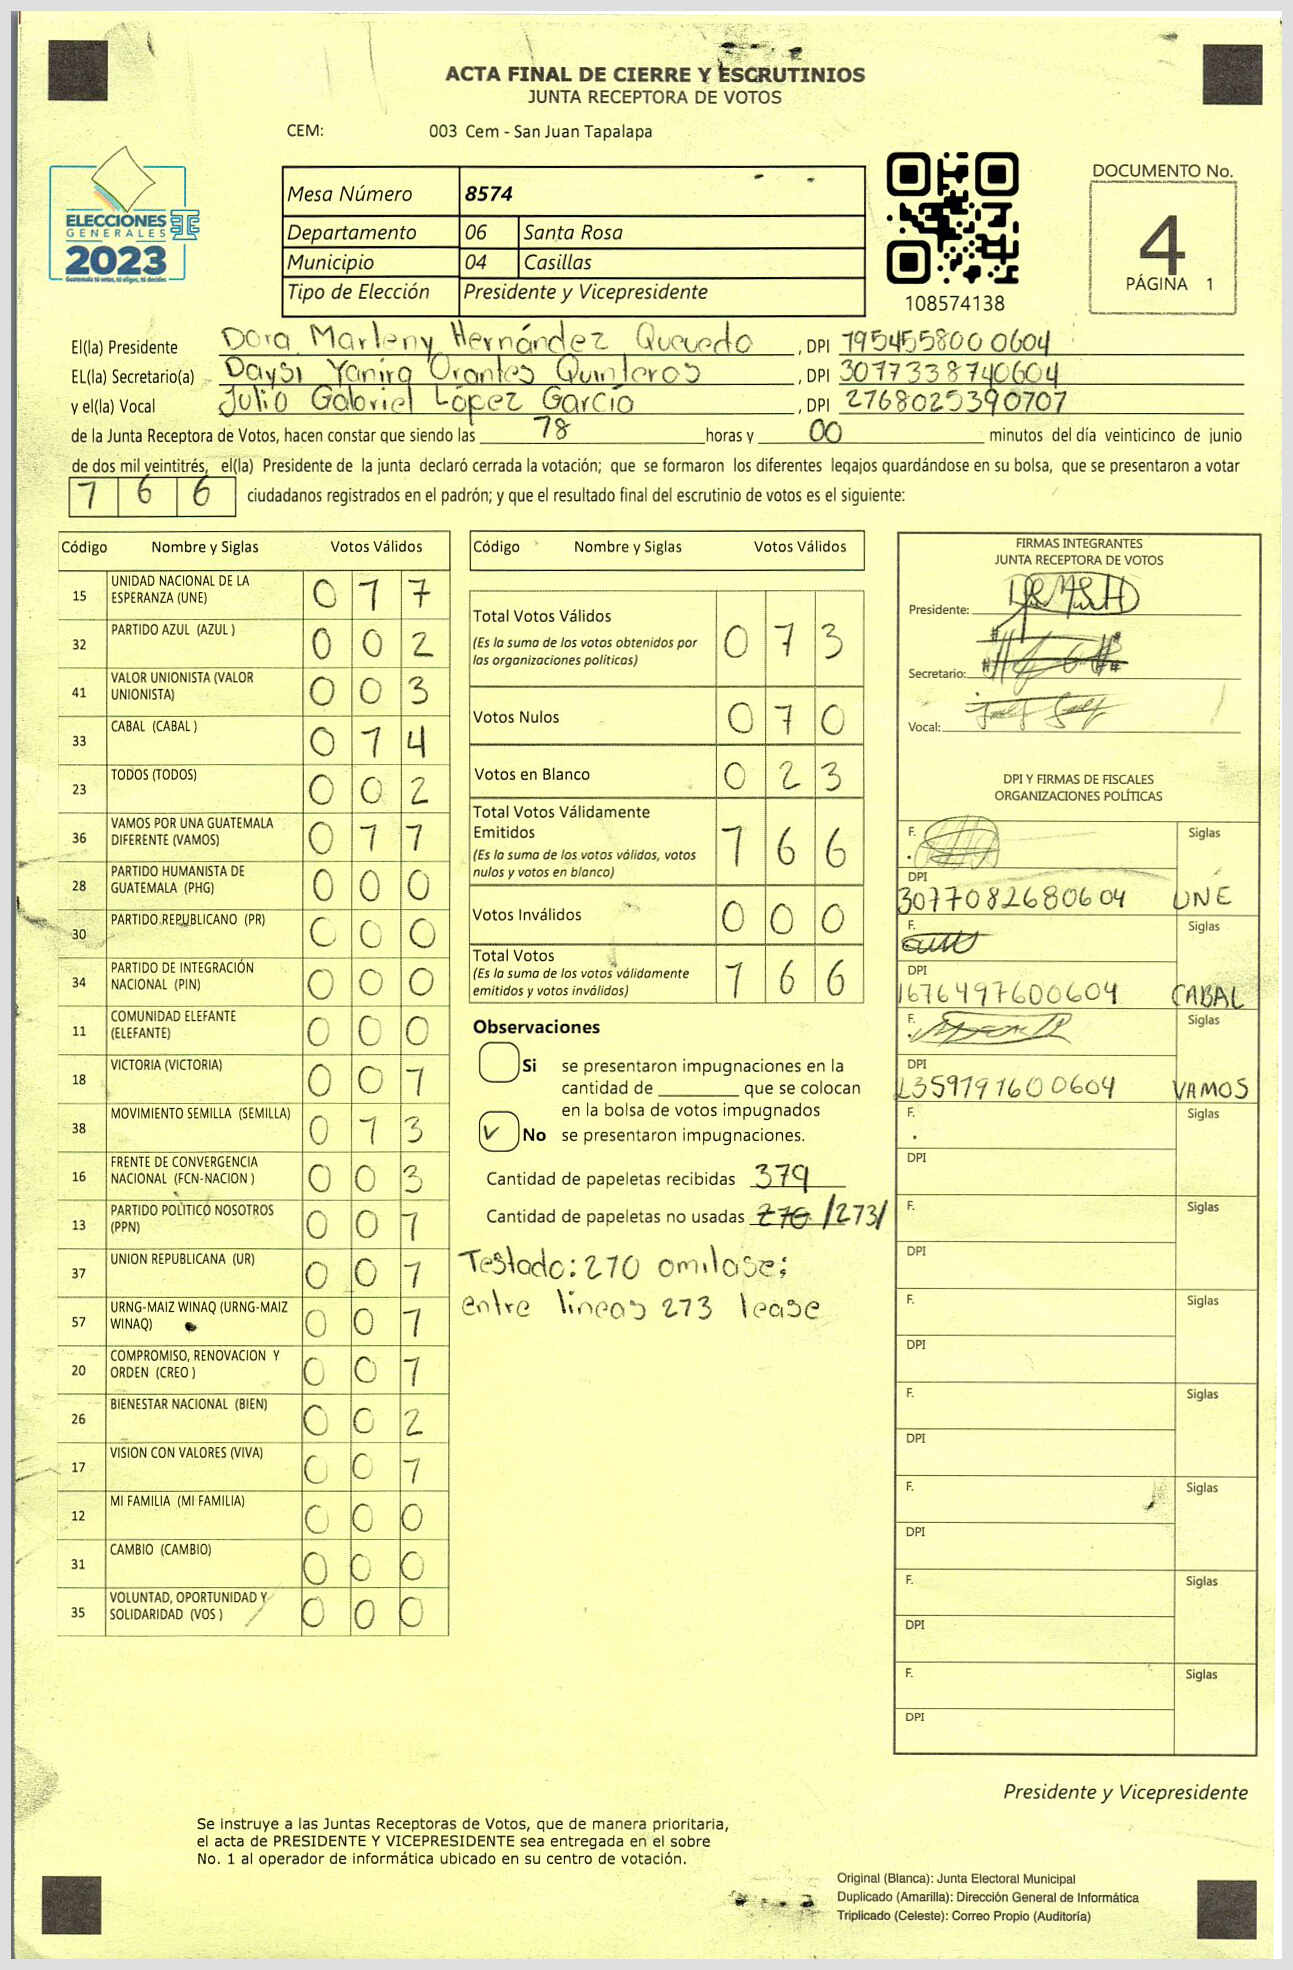 ACTA FINAL DE CIERRE Y ESCRUTINIOS
JUNTA RECEPTORA DE VOTOS
CEM: 003 Cem - San Juan Tapalapa
ELECCIONES
GENERALES
2023
Guatemala tú votas, tú eliges, tú decides
Mesa Número 8574
Departamento 06 Santa Rosa
Municipio 04 Casillas
Tipo de Elección Presidente y Vicepresidente
108574138
DOCUMENTO No.
4
PÁGINA 1
El(la) Presidente Dora Marleny Hernández Quevedo, DPI 1954558000604
EL(la) Secretario(a) Daysi Yanira Orantes Quinteros, DPI 3077338740604
y el(la) Vocal Julio Gabriel López García, DPI 2768025390101
de la Junta Receptora de Votos, hacen constar que siendo las 18 horas y 00 minutos del día veinticinco de junio
de dos mil veintitrés, el(la) Presidente de la junta declaró cerrada la votación; que se formaron los diferentes legajos guardándose en su bolsa, que se presentaron a votar
1 6 6 ciudadanos registrados en el padrón; y que el resultado final del escrutinio de votos es el siguiente:
Código Nombre y Siglas Votos Válidos
15 UNIDAD NACIONAL DE LA ESPERANZA (UNE) 0 1 7
32 PARTIDO AZUL (AZUL ) 0 0 2
41 VALOR UNIONISTA (VALOR UNIONISTA) 0 0 3
33 CABAL (CABAL ) 0 1 4
23 TODOS (TODOS) 0 0 2
36 VAMOS POR UNA GUATEMALA DIFERENTE (VAMOS) 0 1 1
28 PARTIDO HUMANISTA DE GUATEMALA (PHG) 0 0 0
30 PARTIDO REPUBLICANO (PR) 0 0 0
34 PARTIDO DE INTEGRACIÓN NACIONAL (PIN) 0 0 0
11 COMUNIDAD ELEFANTE (ELEFANTE) 0 0 0
18 VICTORIA (VICTORIA) 0 0 1
38 MOVIMIENTO SEMILLA (SEMILLA) 0 1 3
16 FRENTE DE CONVERGENCIA NACIONAL (FCN-NACION ) 0 0 3
13 PARTIDO POLITICO NOSOTROS (PPN) 0 0 1
37 UNION REPUBLICANA (UR) 0 0 1
57 URNG-MAIZ WINAQ (URNG-MAIZ WINAQ) 0 0 1
20 COMPROMISO, RENOVACION Y ORDEN (CREO ) 0 0 1
26 BIENESTAR NACIONAL (BIEN) 0 0 2
17 VISION CON VALORES (VIVA) 0 0 1
12 MI FAMILIA (MI FAMILIA) 0 0 0
31 CAMBIO (CAMBIO) 0 0 0
35 VOLUNTAD, OPORTUNIDAD Y SOLIDARIDAD (VOS ) 0 0 0
Código Nombre y Siglas Votos Válidos
Total Votos Válidos 0 7 3
(Es la suma de los votos obtenidos por
las organizaciones políticas)
Votos Nulos 0 7 0
Votos en Blanco 0 2 3
Total Votos Válidamente
Emitidos 1 6 6
(Es la suma de los votos válidos, votos
nulos y votos en blanco)
Votos Inválidos 0 0 0
Total Votos 1 6 6
(Es la suma de los votos válidamente
emitidos y votos inválidos)
Observaciones
Si se presentaron impugnaciones en la
cantidad de ________ que se colocan
en la bolsa de votos impugnados
✓ No se presentaron impugnaciones.
Cantidad de papeletas recibidas 379
Cantidad de papeletas no usadas 210 /213/
Testado: 210 omitase;
entre lineas 213 lease
FIRMAS INTEGRANTES
JUNTA RECEPTORA DE VOTOS
Presidente:
Secretario:
Vocal:
DPI Y FIRMAS DE FISCALES
ORGANIZACIONES POLÍTICAS
F. Siglas
DPI
3077082680604 UNE
F. Siglas
DPI
1676497600604 CABAL
F. Siglas
DPI
2359191600604 VAMOS
F. Siglas
DPI
F. Siglas
DPI
F. Siglas
DPI
F. Siglas
DPI
F. Siglas
DPI
F. Siglas
DPI
F. Siglas
DPI
Presidente y Vicepresidente
Se instruye a las Juntas Receptoras de Votos, que de manera prioritaria,
el acta de PRESIDENTE Y VICEPRESIDENTE sea entregada en el sobre
No. 1 al operador de informática ubicado en su centro de votación.
Original (Blanca): Junta Electoral Municipal
Duplicado (Amarilla): Dirección General de Informática
Triplicado (Celeste): Correo Propio (Auditoría)